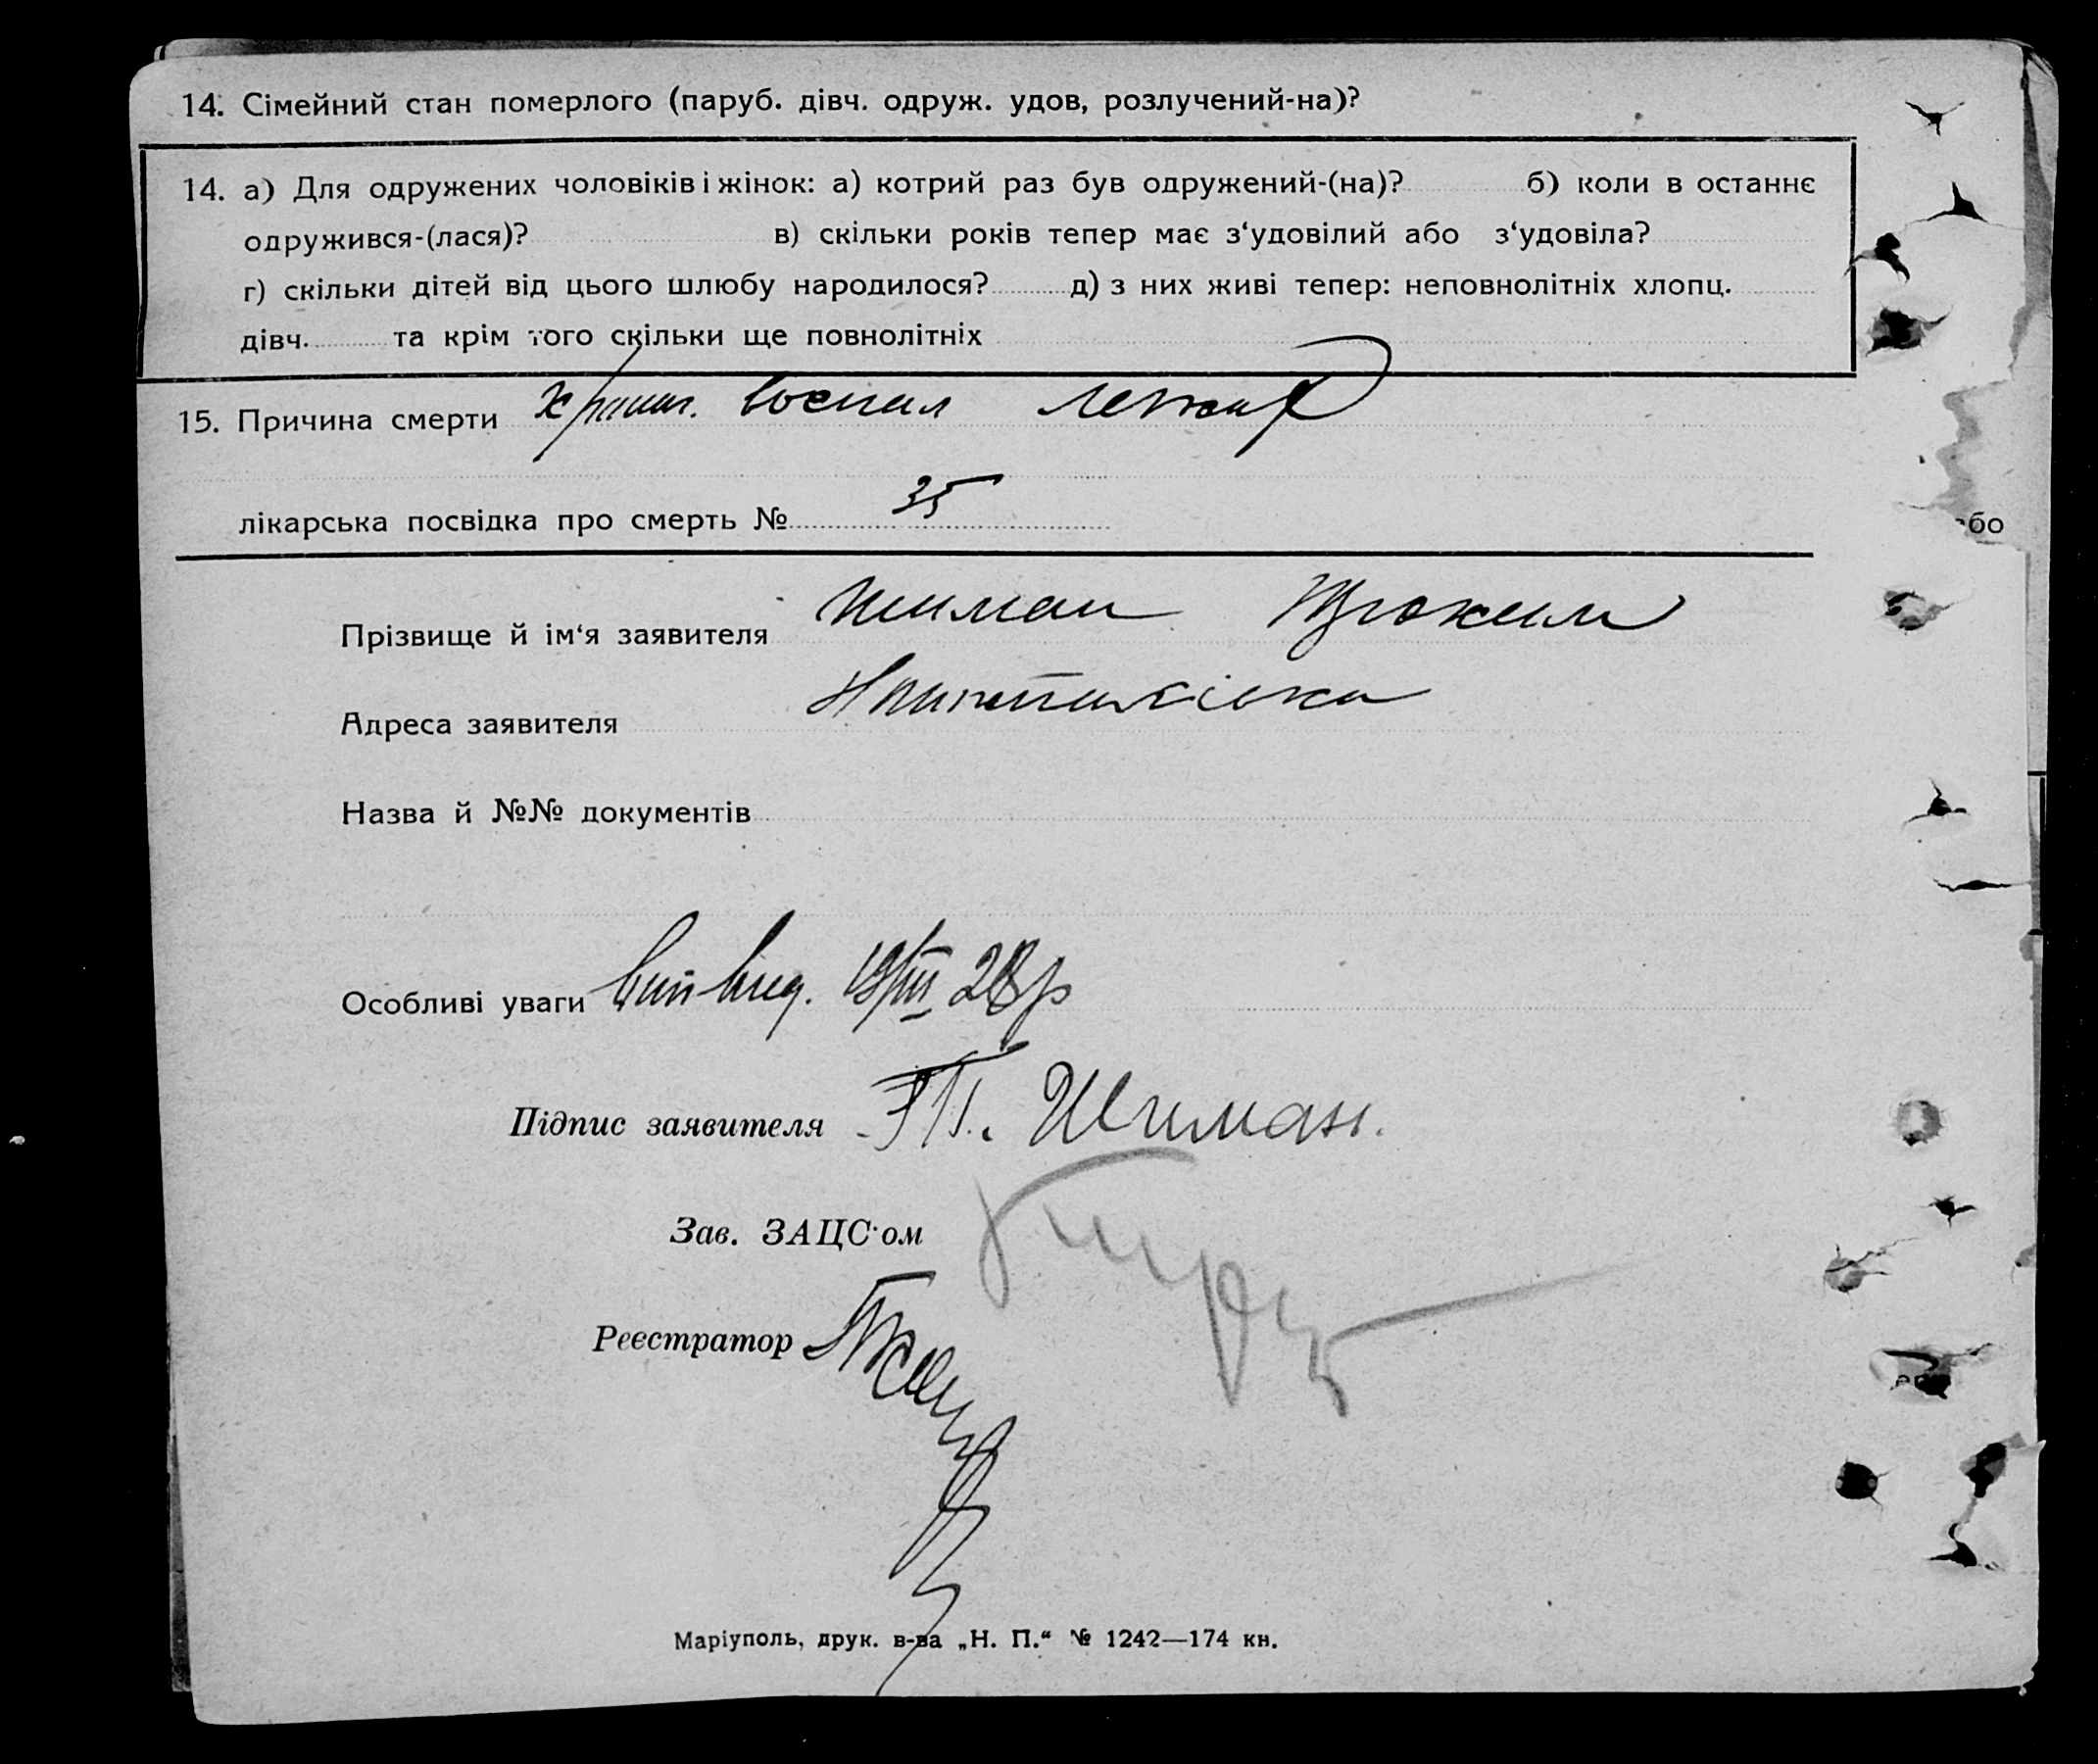 14. Сімейний стан померлого (паруб. дівч. одруж. удов, розлучений-на)?
14. а) Для одружених чоловіків і жінок: а) котрий раз був одружений-(на)? б) коли в останнє
одружився-(лася)? в) скільки років тепер має з‘удовілий або з‘удовіла?
г) скільки дітей від цього шлюбу народилося? д) з них живі тепер: неповнолітніх хлопц.
дівч. та крім того скільки ще повнолітніх
15. Причина смерти воспал легких
лікарська посвідка про смерть № 35
або
Прізвище й ім‘я заявителя Шиман
Адреса заявителя
Назва й №№ документів
Особливі уваги Вип вид. 19/III 28р
Підпис заявителя П. Шиман.
Зав. ЗАЦС‘ом
Реєстратор
Маріуполь, друк. в-ва „Н. П.“ № 1242—174 кн.